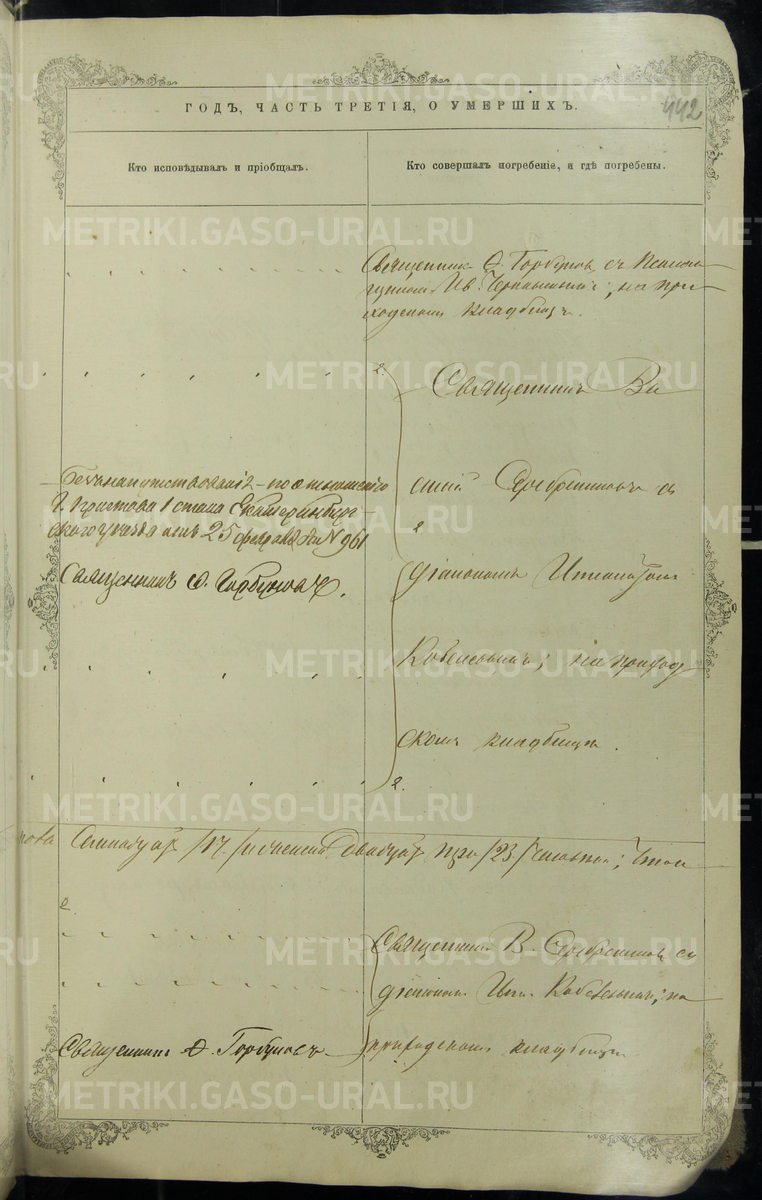 442
ГОДЪ, ЧАСТЬ ТРЕТІЯ, О УМЕРШИХЪ.
Кто исповѣдывалъ и пріобщалъ.
Кто совершалъ погребеніе, и гдѣ погребены.
Священникъ Ѳ. Горбуновъ съ
Ив. на при-
ходскомъ кладбищѣ.
Священникъ Ва
силій Серебренниковъ съ
Безъ напутствованія - по отношенію
Г. Пристава 1 стана Екатеринбург-
скаго уѣзда отъ 25 февраля за № 961
Священникъ Ѳ. Горбуновъ.
діакономъ
на приход
скомъ кладбищѣ.
/17/ и женска двадцать три /23/ итого
Священникъ В. Серебренниковъ съ
діакономъ на
приходскомъ кладбищѣ
Священникъ Ѳ. Горбуновъ
METRIKI.GASO-URAL.RU